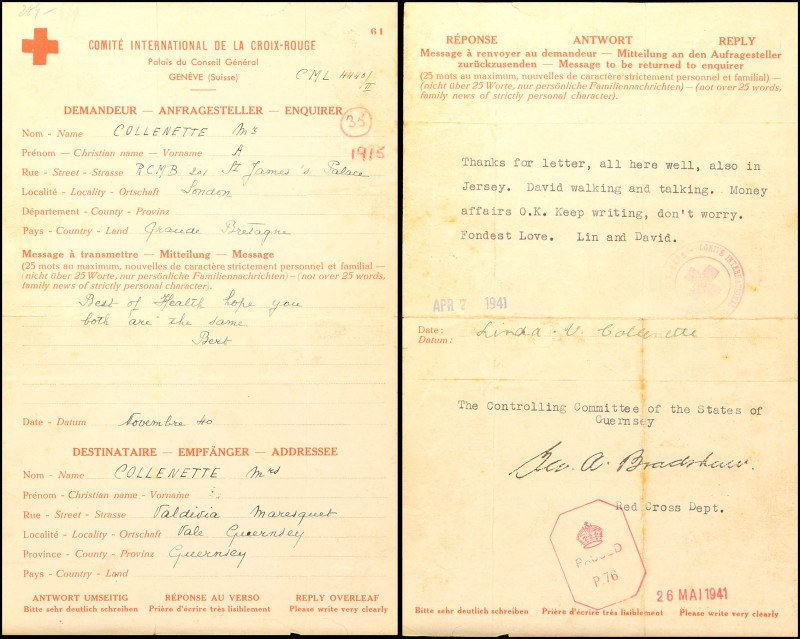 61
COMITÉ INTERNATIONAL DE LA CROIX-ROUGE
Palais du Conseil Général
GENÈVE (Suisse)
CML 4440/
II
DEMANDEUR — ANFRAGESTELLER — ENQUIRER
35
Nom - Name COLLENETTE Mr
1915
Prénom — Christian name — Vorname A
Rue - Street - Strasse R.C.M.B 201 St James's Palace
Localité - Locality - Ortschaft London
Département - County - Provinz
Pays - Country - Land Grande Bretagne
Message à transmettre — Mitteilung — Message
(25 mots au maximum, nouvelles de caractère strictement personnel et familial) —
(nicht über 25 Worte, nur persönliche Familiennachrichten) — (not over 25 words,
family news of strictly personal character).
Best of Health hope you
both are the same
Bert
Date - Datum Novembre 40
DESTINATAIRE — EMPFÄNGER — ADDRESSEE
Nom - Name COLLENETTE Mrs
Prénom - Christian name - Vorname
Rue - Street - Strasse Valdivia Maresquet
Localité - Locality - Ortschaft Vale Guernsey
Province - County - Provinz Guernsey
Pays - Country - Land
ANTWORT UMSEITIG RÉPONSE AU VERSO REPLY OVERLEAF
Bitte sehr deutlich schreiben Prière d'écrire très lisiblement Please write very clearly
RÉPONSE ANTWORT REPLY
Message à renvoyer au demandeur — Mitteilung an den Anfragesteller
zurückzusenden — Message to be returned to enquirer
(25 mots au maximum, nouvelles de caractère strictement personnel et familial) —
(nicht über 25 Worte, nur persönliche Familiennachrichten) — (not over 25 words,
family news of strictly personal character).
Thanks for letter, all here well, also in
Jersey. David walking and talking. Money
affairs O.K. Keep writing, don't worry.
Fondest Love. Lin and David.
APR 7 1941
Date: Linda V. Collenette
Datum:
The Controlling Committee of the States of
Guernsey
Geo. A. Bradshaw.
Red Cross Dept.
PASSED
P.76
26 MAI 1941
Bitte sehr deutlich schreiben Prière d'écrire très lisiblement Please write very clearly